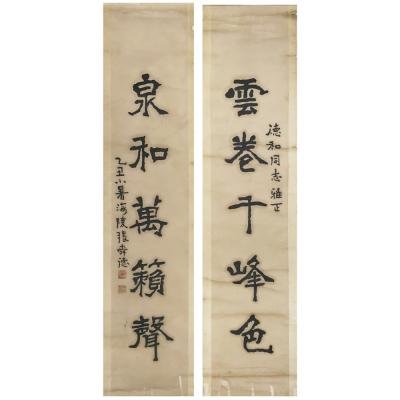 雲卷千峰色
德和同志雅正
泉和萬籟聲
乙丑小暑海陵張舜德